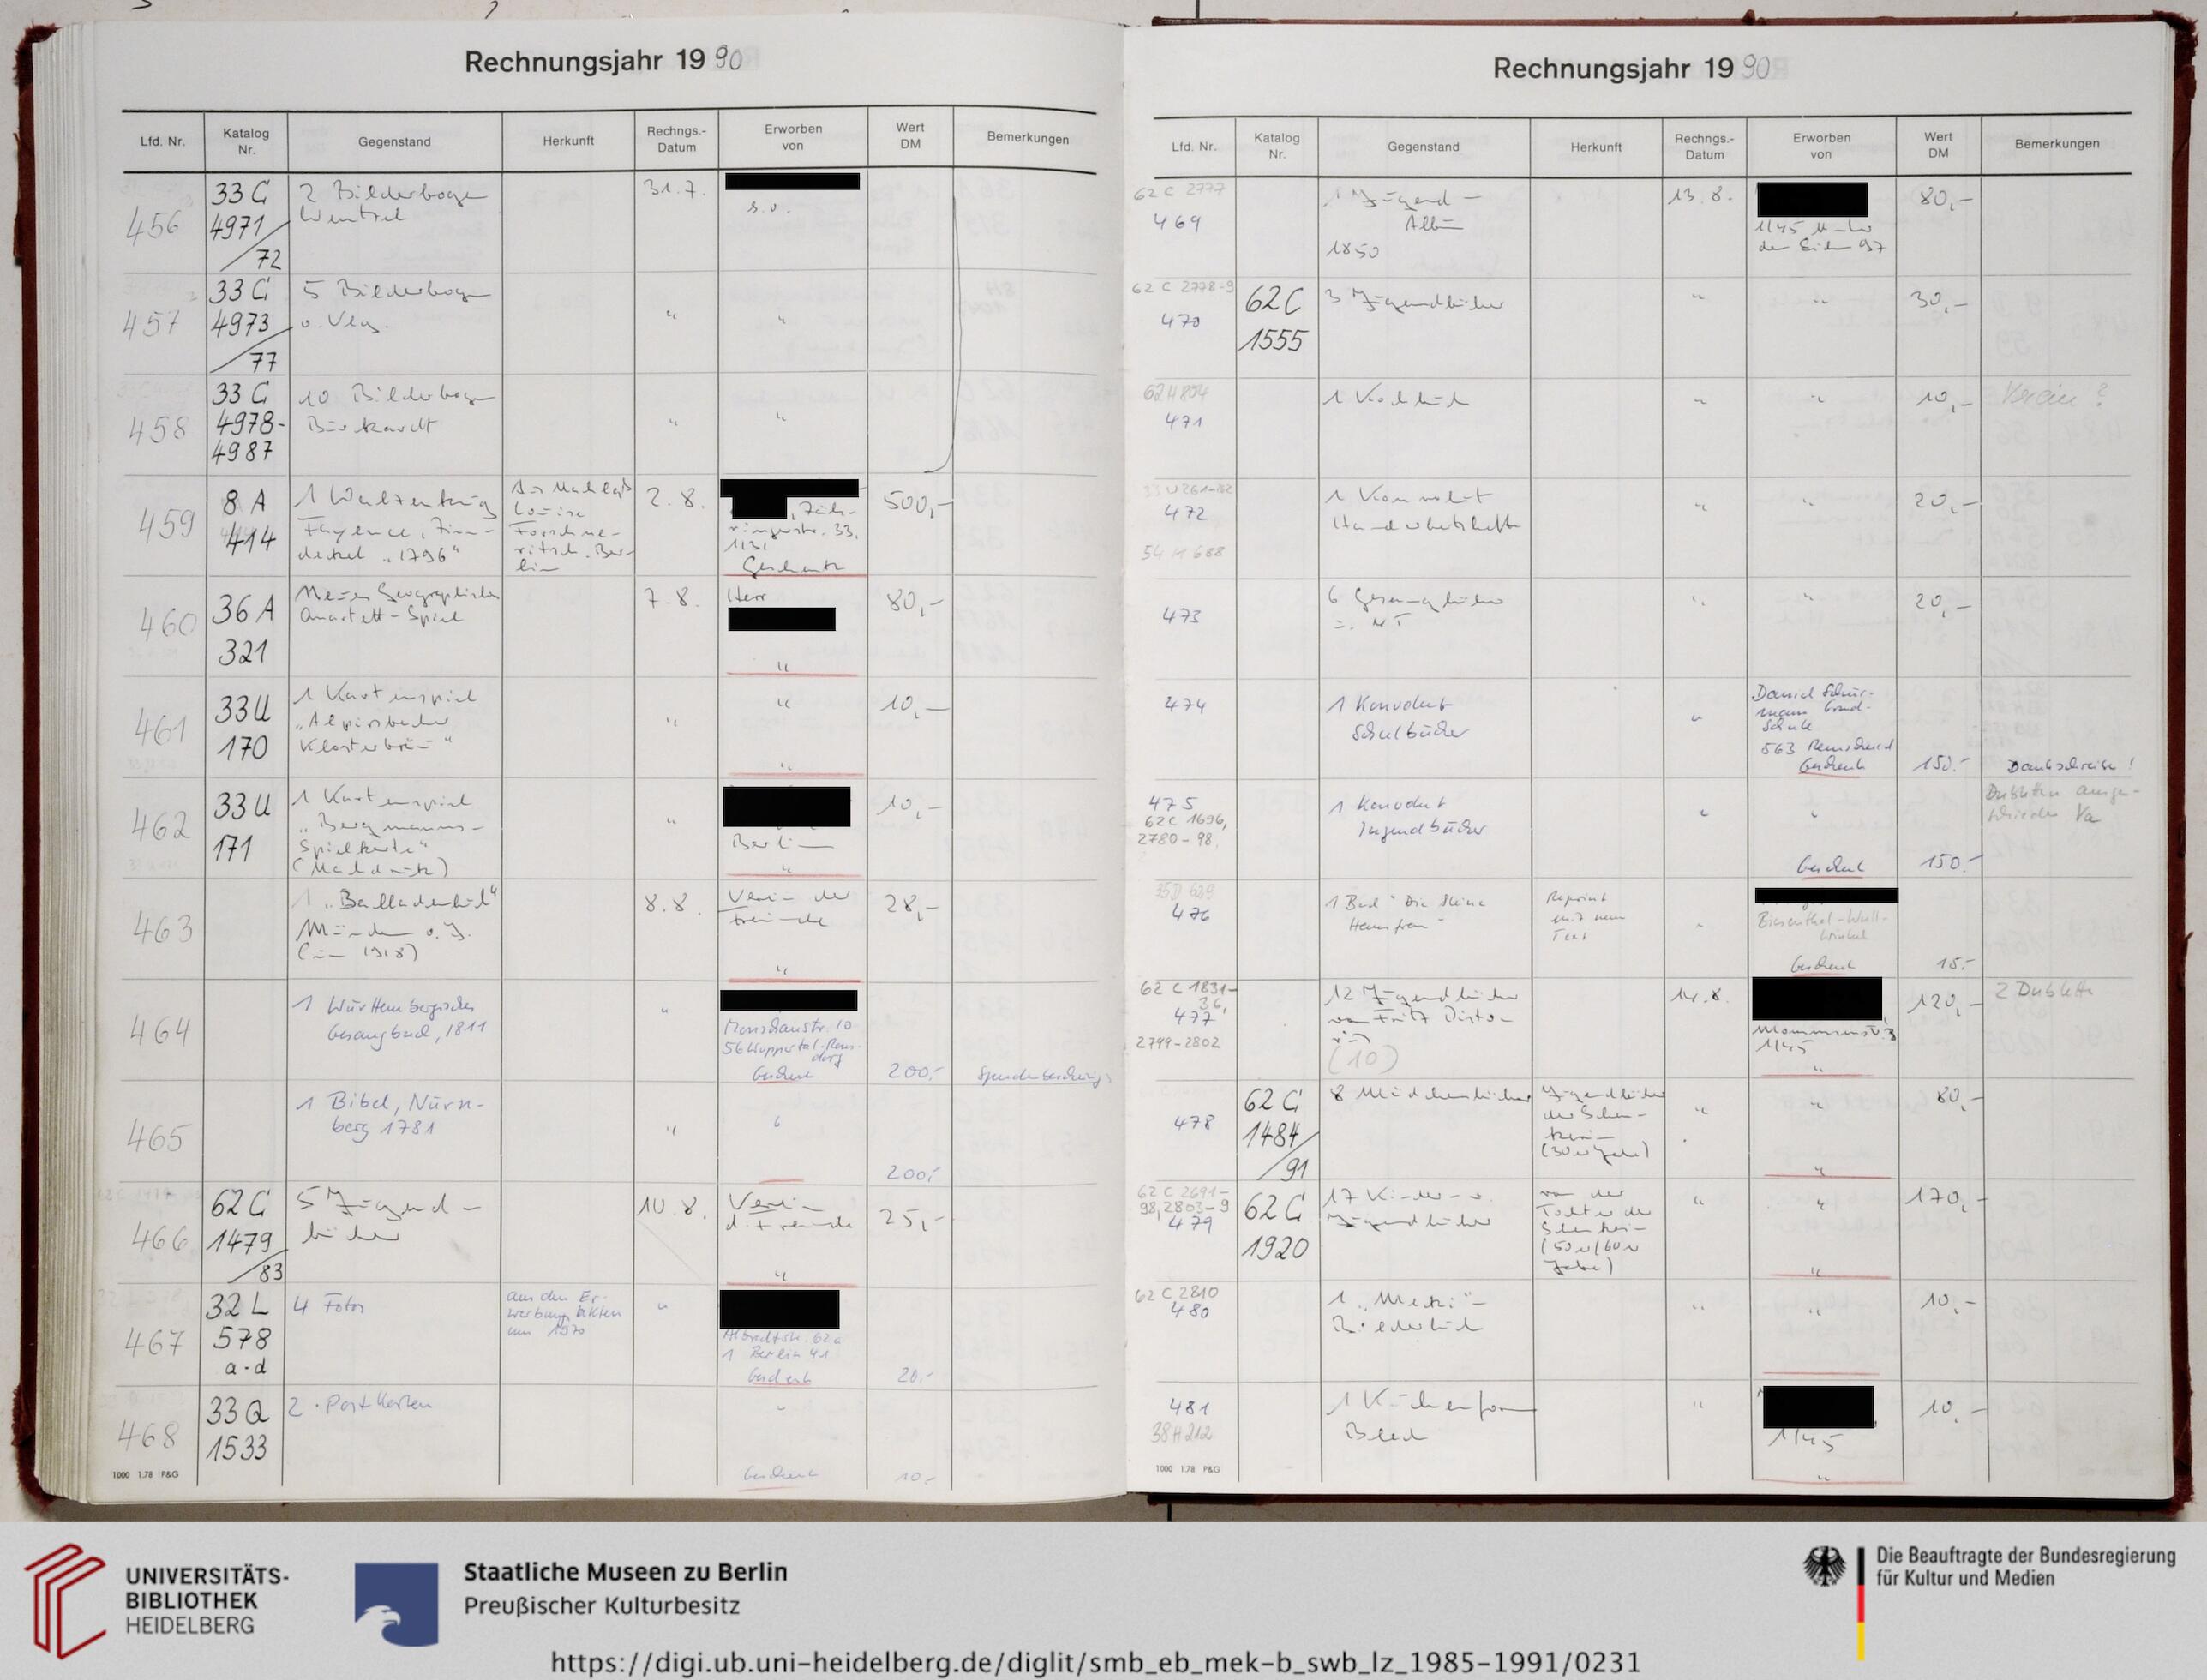 Rechnungsjahr 1990
Lfd. Nr.
Katalog Nr.
Gegenstand
Herkunft
Rechngs.-Datum
Erworben von
Wert DM
Bemerkungen
456
33 C
4971/72
2 Bilderbogen
Wentzel
31.7.
s.o.
457
33 C
4973/77
5 Bilderbogen
o. Verlag
"
"
458
33 C
4978-
4987
10 Bilderbogen
Burkardt
"
"
459
8 A
414
1 Walzenkrug
Fayence, Zinn-
deckel "1796"
Aus Nachlaß
Louise
Ber-
lin
2.8.
, Zäh-
ringerstr. 33,
1/31
Geschenk
500,-
460
36 A
321
Neues Geographisches
Quartett-Spiel
7.8.
Herr
"
80,-
461
33 U
170
1 Kartenspiel
"Alpirsbacher
Klosterbräu"
"
"
"
10,-
462
33 U
171
1 Kartenspiel
"Bergmanns-
Spielkarte"
(Nachdruck)
"
Berlin
"
10,-
463
1 "Balladenbuch"
München o. J.
(um 1918)
8.8.
Verein der
Freunde
"
28,-
464
1 Württembergisches
Gesangbuch, 1811
"
56 Wuppertal-Rons-
dorf
Geschenk
200,-
465
1 Bibel, Nürn-
berg 1781
"
"
200,-
466
62 C
1479/83
5 Jugend-
bücher
10.8.
Verein
d. Freunde
"
25,-
467
32 L
578
a-d
4 Fotos
aus den Er-
werbungsakten
um 1970
"
Albrechtstr. 62a
1 Berlin 41
Geschenk
20,-
468
33 Q
1533
2 Postkarten
"
Geschenk
10,-
1000 1.78 P&G
Rechnungsjahr 1990
Lfd. Nr.
Katalog Nr.
Gegenstand
Herkunft
Rechngs.-Datum
Erworben von
Wert DM
Bemerkungen
62 C 2777
469
1 Jugend-
Album
1850
13.8.
1/45 Unter
den Eichen 97
80,-
62 C 2778-9
470
62 C
1555
3 Jugendbücher
"
"
30,-
62 H 804
471
1 Kochbuch
"
"
10,-
Verein ?
33 U 261-82
472
54 H 688
1 Konvolut
Handarbeitshefte
"
"
20,-
473
6 Gesangbücher
u. NT
"
"
20,-
474
1 Konvolut
Schulbücher
"
Daniel Schür-
mann Grund-
Schule
563 Remscheid
Geschenk
150.-
Dankschreiben!
475
62 C 1696,
2780-98,
1 Konvolut
Jugendbücher
"
"
Geschenk
150.-
Dubletten ausge-
schieden Va
35 D 629
476
1 Buch "Die kleine
Hausfrau"
Reprint
mit neuem
Text
"
Geschenk
15.-
62 C 1831-
36,
477
2799-2802
12 Jugendbücher
von Fritz
(10)
14.8.
Mommsenstr. 3
1/45
"
120,-
2 Dubletten
478
62 C
1484/91
8 Mädchenbücher
Jugendbücher
der Schen-
kerin
(30er Jahre)
"
"
"
80,-
62 C 2691-
98, 2803-9
479
62 C
1920
17 Kinder- u.
Jugendbücher
von der
Tochter der
Schenkerin
(50er/60er
Jahre)
"
"
"
170,-
62 C 2810
480
1 "Mecki"-
Bilderbuch
"
"
10,-
481
38 H 212
1 Kuchenform
Blech
"
1/45
"
10,-
1000 1.78 P&G
UNIVERSITÄTS-
BIBLIOTHEK
HEIDELBERG
Staatliche Museen zu Berlin
Preußischer Kulturbesitz
Die Beauftragte der Bundesregierung
für Kultur und Medien
https://digi.ub.uni-heidelberg.de/diglit/smb_eb_mek-b_swb_lz_1985-1991/0231